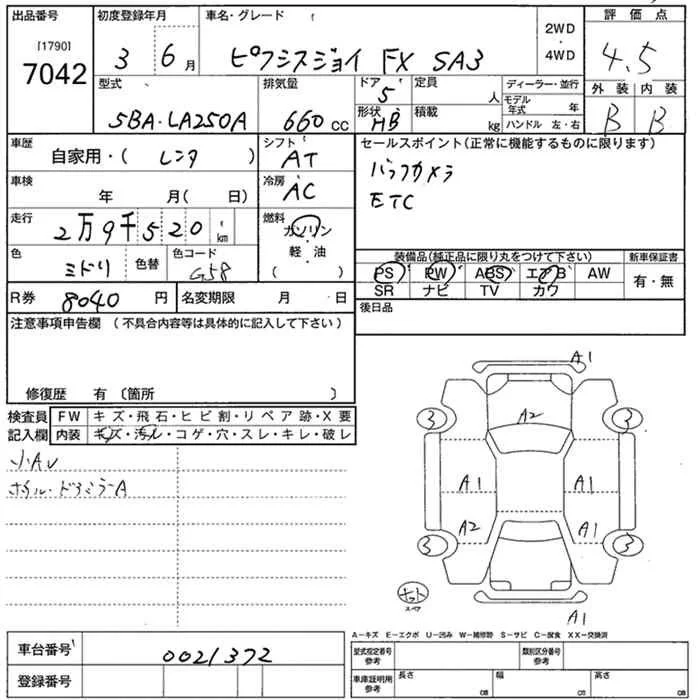 出品番号 初度登録年月 車名・グレード 評価点
[1790]
7042
3 6月
ピクシスジョイ FX SA3
2WD・4WD
4.5
型式 排気量 ドア 定員 ディーラー・並行 外装 内装
5BA-LA250A 660cc 5 人 モデル年式 年 B B
形状 積載
HB kg ハンドル 左・右
車歴 シフト セールスポイント(正常に機能するものに限ります)
自家用・( レンタ ) AT
バックカメラ
車検 冷房
年 月( 日) AC
ETC
走行 燃料
2万9千520km ガソリン
軽・油
( )
色 色替 色コード
ミドリ G58
装備品(純正品に限り丸をつけて下さい) 新車保証書
PS PW ABS エアB AW 有・無
SR ナビ TV カワ
R券 8040円 名変期限 月 日
後日品
注意事項申告欄(不具合内容等は具体的に記入して下さい)
修復歴 有〔箇所 〕
検査員 FW キズ・飛石・ヒビ割・リペア跡・X要
記入欄 内装 キズ・汚れ・コゲ・穴・スレ・キレ・破レ
小AU
ホイル・ドアミラーA
A1
3 3
A2
A1 A1
A2 A1
3 3
スペア
A1
A－キズ E－エクボ U－凹み W－補修跡 S－サビ C－腐食 XX－交換済
車台番号 0021372
型式指定番号 参考 類別区分番号 参考
登録番号
車庫証明用 参考 長さ cm 幅 cm 高さ cm